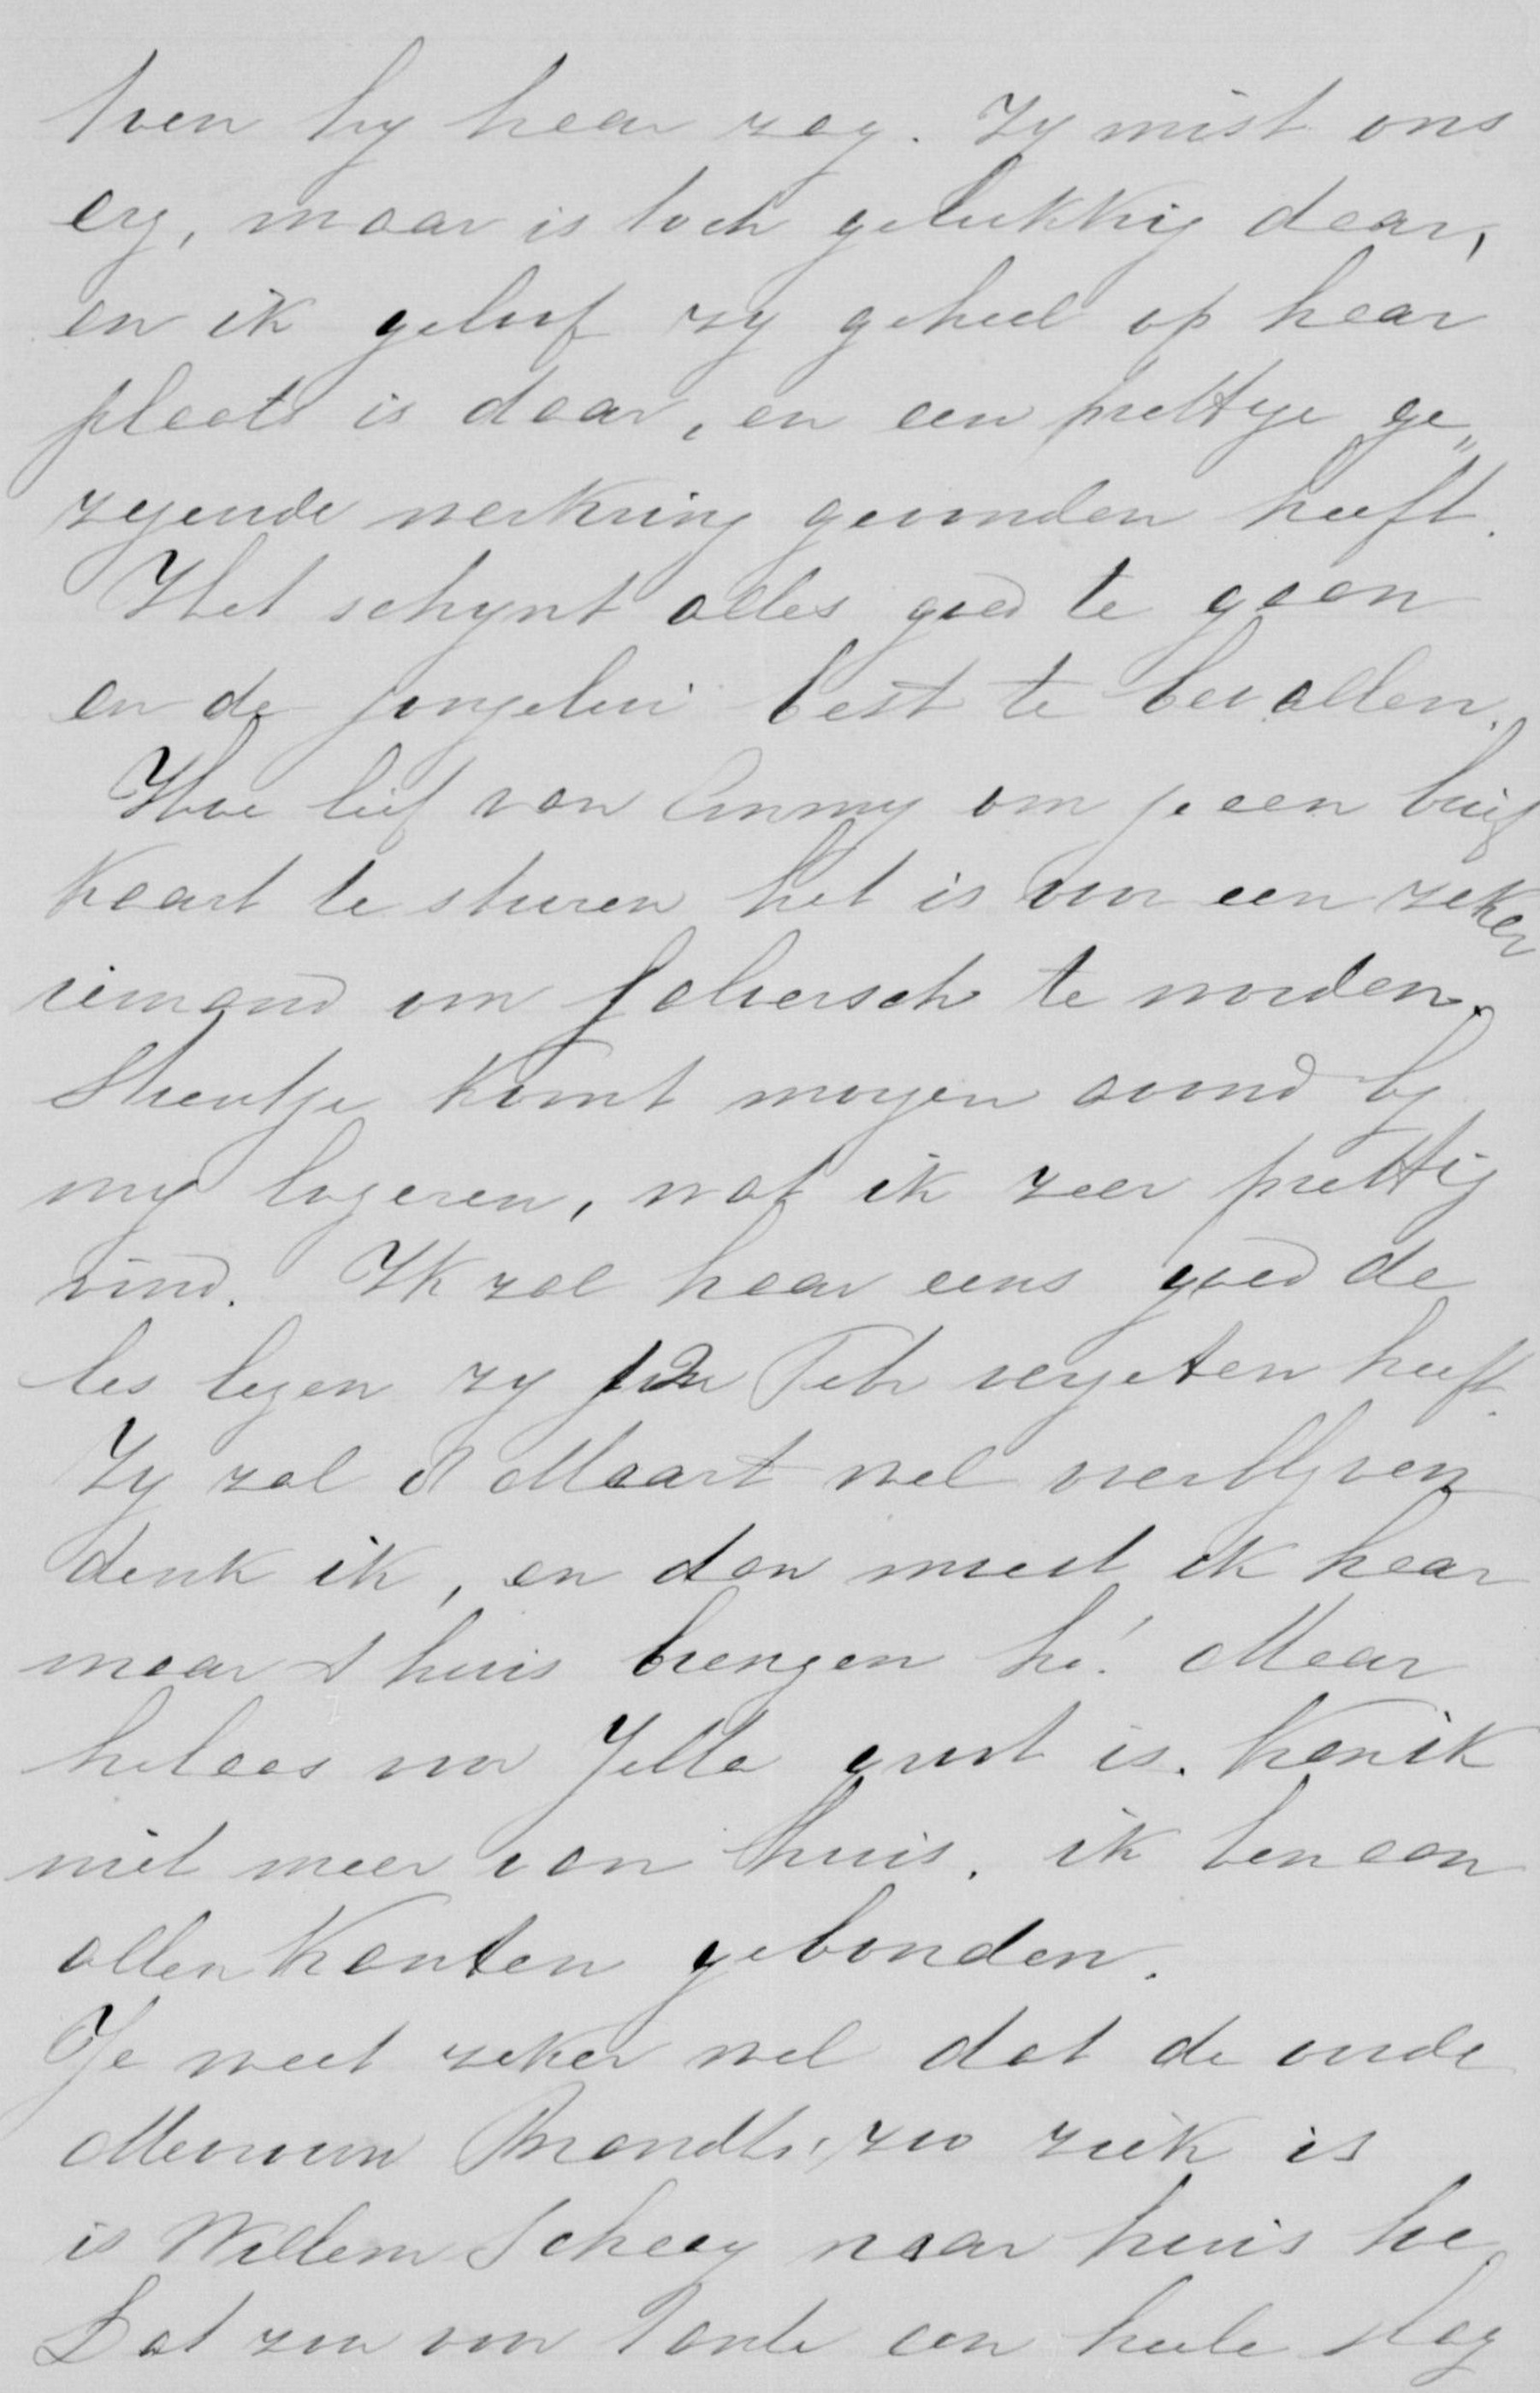 toen hy haar zag. Zy mist ons
erg, maar is toch gelukkig daar,
en ik geloof zy geheel op haar
plaats is daar, en een prettige ge„
zegende werkkring gevonden heeft.
Het schynt alles goed te gaan
en de jongelui best te bevallen.
Hoe lief van Emmy om je een brief
kaart te sturen het is voor een zeker
iemand om jaloersch te worden.
komt morgen avond by
my logeren, wat ik zeer prettig
vind. Ik zal haar eens goed de
les lezen zy 12 Feb vergeten heeft.
Zy zal 1 Maart wel overblyven
denk ik, en dan moet ik haar
maar thuis brengen hè! Maar
helaas nu Jella is. kan ik
niet meer van huis. ik ben aan
allen kanten gebonden.
Je weet zeker wel dat de oude
Mevrouw zoo ziek is
is Willem Scheey naar huis toe
Dat zou voor Tante een heele slag